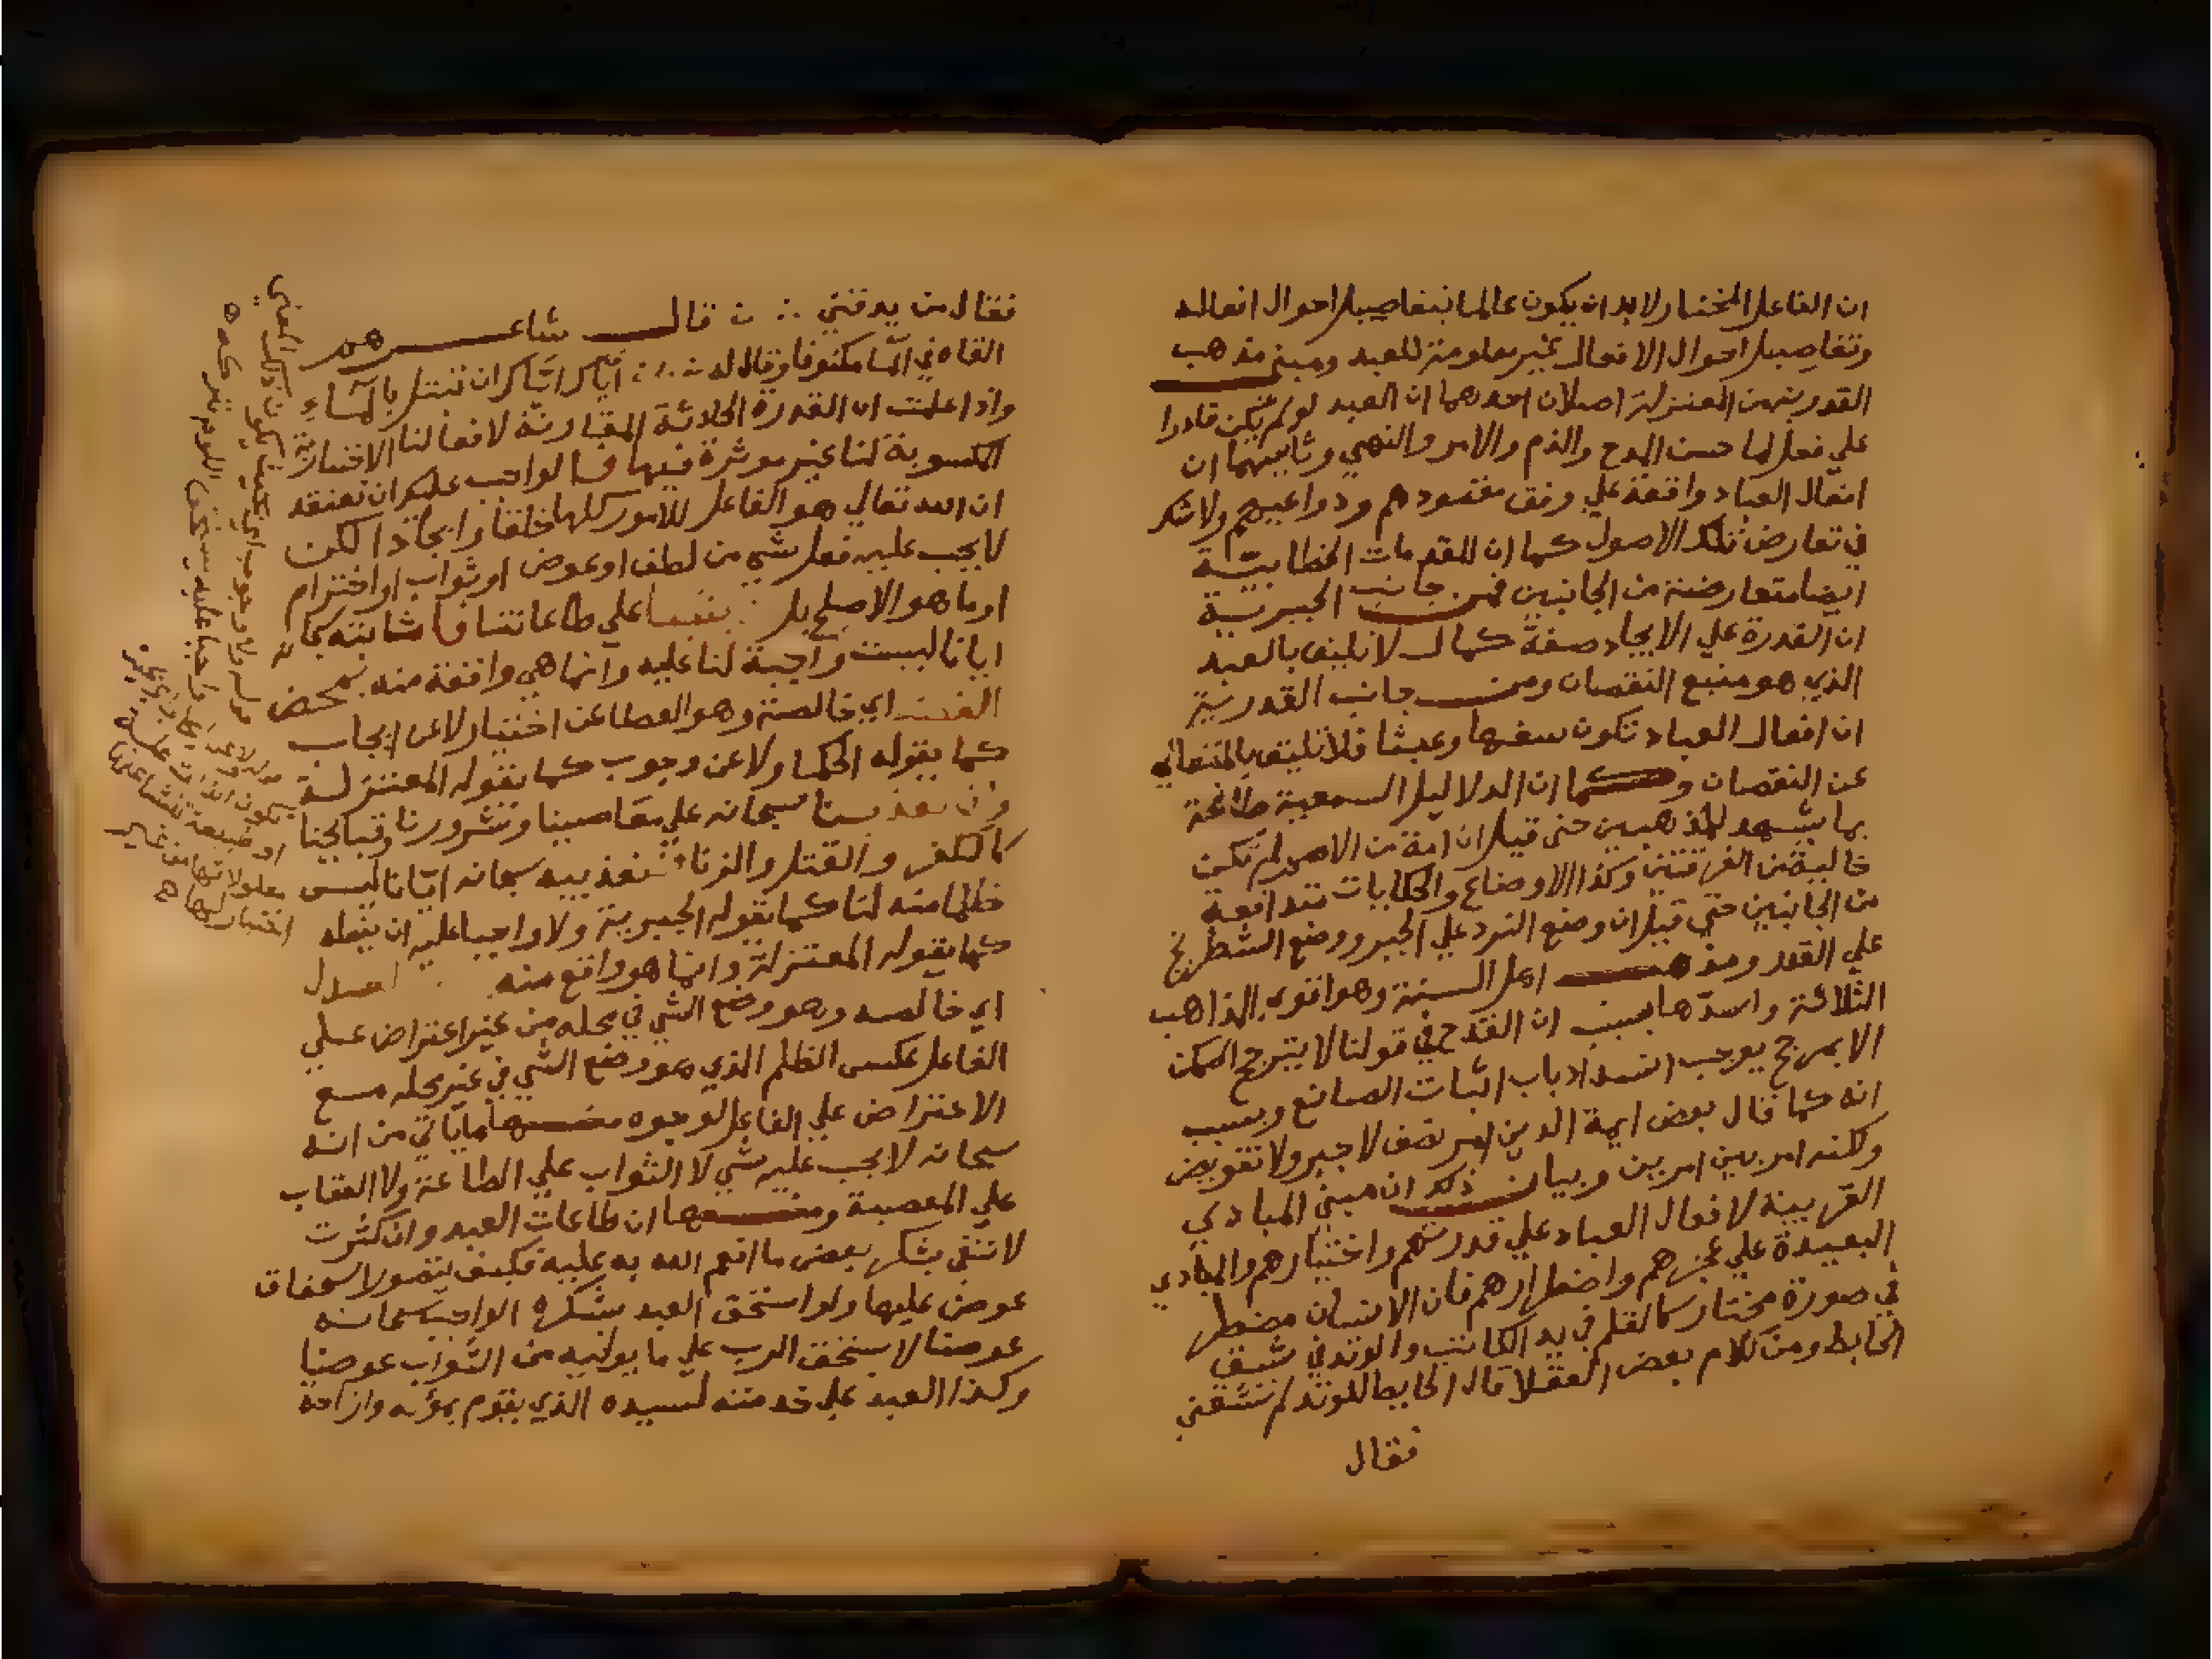 ان الفاعل المختار لابد ان يكون عالما بتفاصيل احوال افعاله
وتفاصيل احوال الافعال غير معلومة للعبد ومبنى مذهب
القدرية من المعتزلة اصلان احدهما ان العبد لو لم يكن قادرا
علي فعل لما حسن المدح والذم والامر والنهي وثانيهما ان
افعال العباد واقعة علي وفق مقصودهم ودواعيهم ولا شك
في تعارض تلك الاصول كما ان المقدمات الخطابية
ايضا متعارضة من الجانبين فمن جانب الجبرية
ان القدرة علي الايجاد صفة كمال لا تليق بالعبد
الذي هو منبع النقصان ومن جانب القدرية
ان افعال العباد تكون سفها وعبثا فلا تليق بالمتعالي
عن النقصان وكما ان الدلايل السمعية طافحة
بما يشهد للمذهبين حتى قيل ان امة من الامم لم تكن
خالية من الفرقتين وكذا الاوضاع والحكايات متدافعة
من الجانبين حتي قيل ان وضع النرد علي الجبر ووضع الشطرنج
علي القدر ومذهب اهل السنة وهو اقوي المذاهب
الثلاثة واسدها بسبب ان القدح في قولنا لا يترجح الممكن
الا بمرجح يوجب انسداد باب اثبات الصانع وبسبب
انه كما قال بعض ايمة الدين امر نصف لا جبر ولا تفويض
ولكنه امر بين امرين وبيان ذلك ان مبنى المبادي
القريبة لافعال العباد علي قدرتهم واختيارهم والمبادي
البعيدة علي عجزهم واضطرارهم فان الانسان مضطر
في صورة مختار كالقلم في يد الكاتب والوتد في شق
الحايط ومن كلام بعض العقلا قال الحايط للوتد لم تشقني
فقال
فقال من يدقني قال شاعرهم
القاه في الما مكتوفا وقال له اياك اياك ان تبتل بالماء
واذا علمت ان القدرة الحادثة المقارنة لافعالنا الاختيارية
المكسوبة لنا غير موثرة فيها فالواجب عليكم ان نعتقد
ان الله تعالي هو الفاعل للامور كلها خلقا وايجادا لكن
لا يجب عليه فعل شي من لطف او عوض او ثواب او اخترام
او ما هو الاصلح بل يثيبنا علي طاعاتنا فاثابته تعالى
ايانا ليست واجبة لنا عليه وانما هي واقعة منه بمحض
الفضل اي خالصه وهو العطا عن اختيار لا عن ايجاب
كما يقوله الحكما ولا عن وجوب كما يقوله المعتزلة
وان يعذبنا سبحانه علي معاصينا وشرورنا وقبايحنا
كالكفر والقتل والزنا فتعذيبه سبحانه ايانا ليس
ظلما منه لنا كما يقوله الجبرية ولا واجبا عليه ان يفعله
كما يقوله المعتزلة وانما هو واقع منه العدل
اي خالصه وهو وضع الشي في محله من غير اعتراض علي
الفاعل عكس الظلم الذي هو وضع الشي في غير محله مع
الاعتراض علي الفاعل لوجوه منها ما ياتي من انه
سبحانه لا يجب عليه شي لا الثواب علي الطاعة ولا العقاب
علي المعصية ومنها ان طاعات العبد وان كثرت
لا تفي بشكر بعض ما انعم الله به عليه فكيف يتصور استحقاق
عوض عليها ولو استحق العبد بشكره الواجب سبحانه
عوضا لاستحق الرب علي ما يوليه من الثواب عوضا
وكذا العبد علي خدمته لسيده الذي يقوم بمؤنه وازاحة